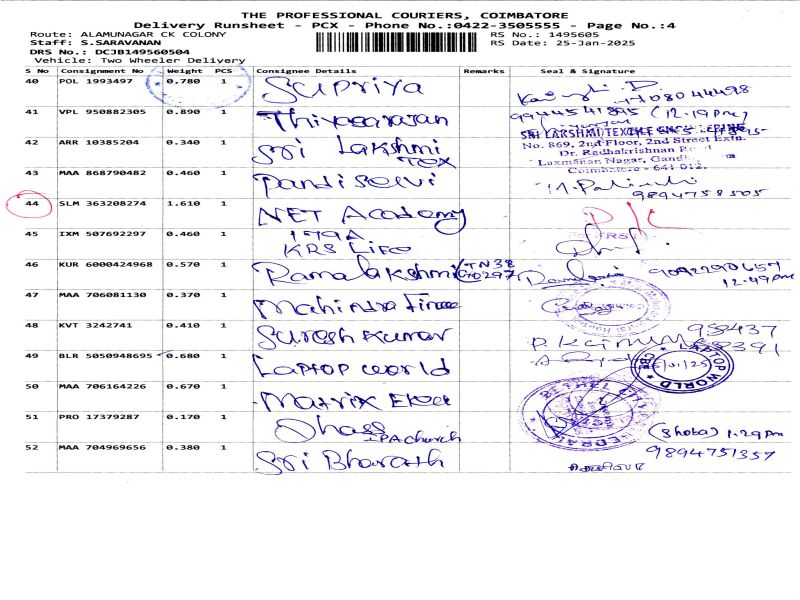 THE PROFESSIONAL COURIERS, COIMBATORE
Delivery Runsheet - PCX - Phone No.:0422-3505555 - Page No.:4
Route: ALAMUNAGAR CK COLONY RS No.: 1495605
Staff: S.SARAVANAN RS Date: 25-Jan-2025
DRS No.: DCJB149560504
Vehicle: Two Wheeler Delivery
S No Consignment No Weight PCS Consignee Details Remarks Seal & Signature
40 POL 1993497 0.780 1 Supriya
41 VPL 950882305 0.890 1 Thiyagarajan 9944541895 (12.19pm)
SRI YAKSHMI TEXTILE ENGINEERING
42 ARR 10385204 0.340 1 Sri Lakshmi Tex No. 869, 2nd Floor, 2nd Street Extn.
Dr. Radhakrishnan
Laxmanan Nagar,
Coimbatore - 641 012.
43 MAA 868790482 0.460 1 Pandiselvi 9894758505
44 SLM 363208274 1.610 1 NET Academy
45 IXM 507692297 0.460 1 179A
KRS Life
46 KUR 6000424968 0.570 1 Ramalakshmi TN38 12.49pm
47 MAA 706081130 0.370 1 Mahindra Finee
48 KVT 3242741 0.410 1 Suresh Kumar
49 BLR 5050948695 0.680 1 Laptop world LAPTOP WORLD CBE
50 MAA 706164226 0.670 1 Matrix Elee
51 PRO 17379287 0.170 1 Dhass IPA church (Shoba) 1.29pm
9894751357
52 MAA 704969656 0.380 1 Sri Bharath